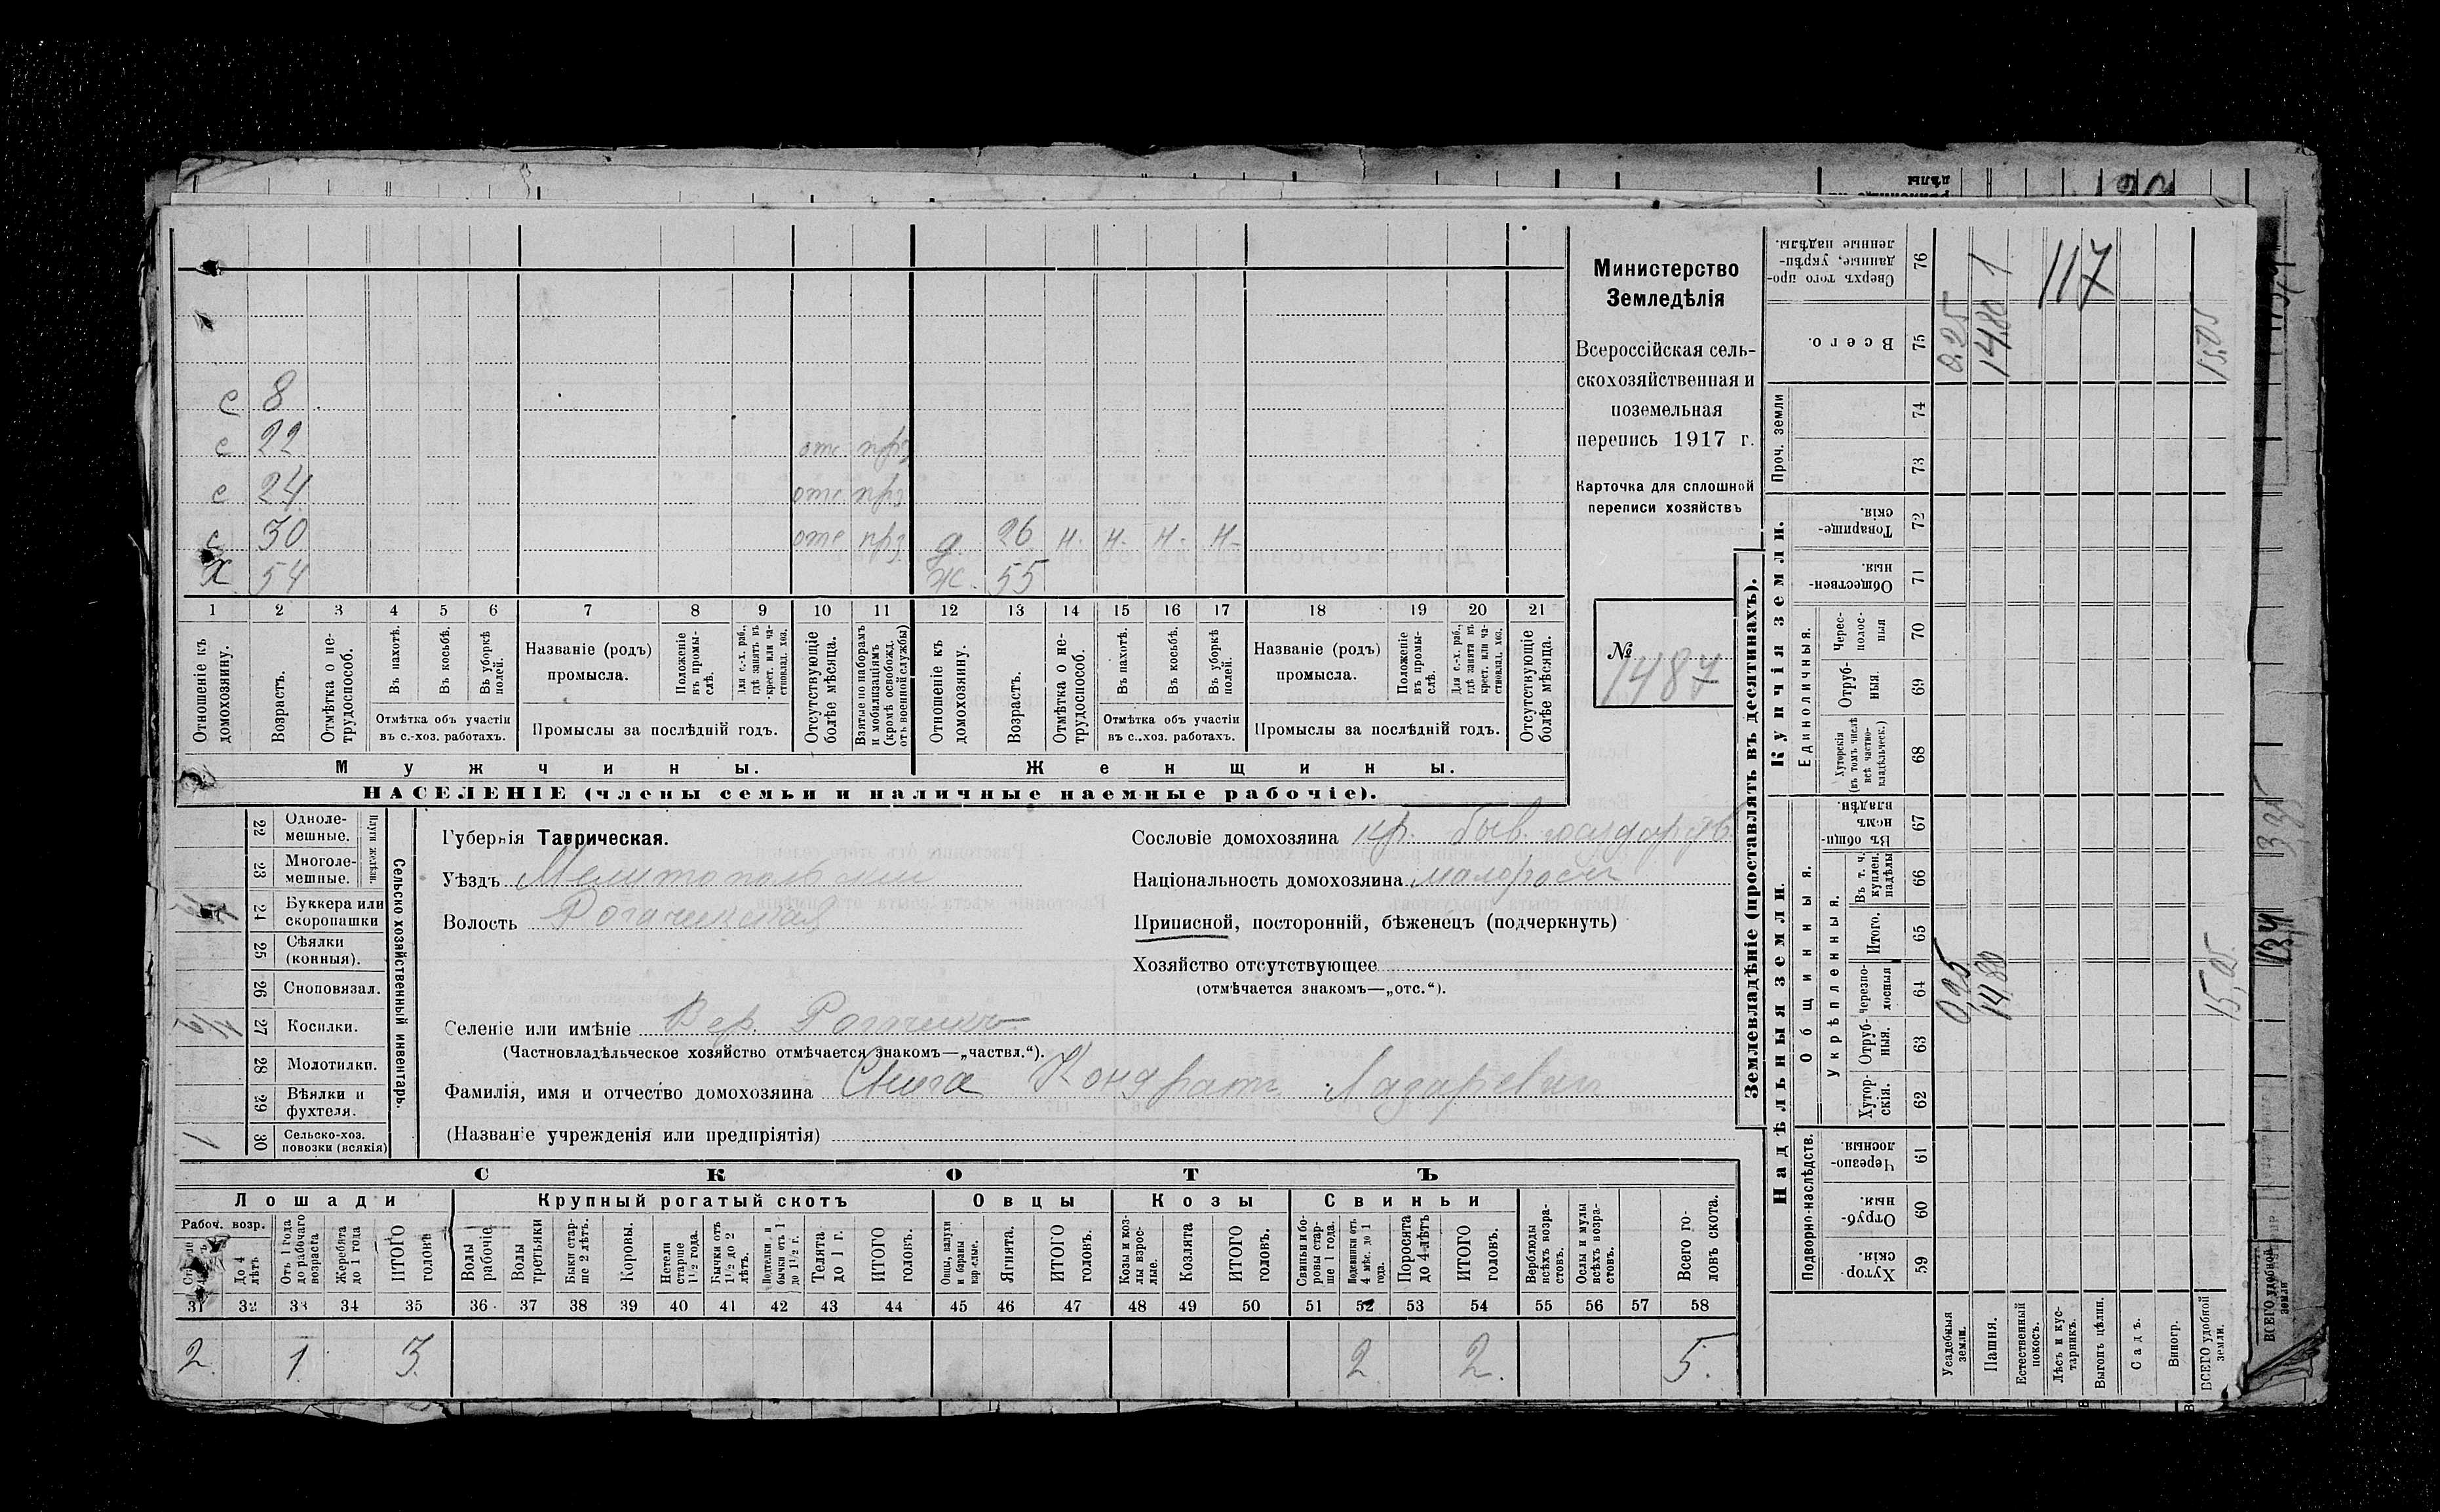 с 8
с 22 отс приз
с 24 отс приз
с 30 отс приз д. 26 н. н. н. н.
х. 54 ж. 55
1 2 3 4 5 6 7 8 9 10 11 12 13 14 15 16 17 18 19 20 21
Отношеніе къ домохозяину.
Возрастъ.
Отмѣтка о нетрудоспособ.
Въ пахотѣ.
Въ косьбѣ.
Въ уборкѣ полей.
Отмѣтка объ участіи
въ с.-хоз. работахъ.
Названіе (родъ)
промысла.
Положеніе въ промыслѣ.
Для с.-х. раб., гдѣ занятъ въ крест. или частновлад. хоз.
Промыслы за послѣдній годъ.
Отсутствующіе болѣе мѣсяца.
Взятые по наборамъ и мобилизаціямъ (кромѣ освобожд. отъ военной службы)
Отношеніе къ домохозяину.
Возрастъ.
Отмѣтка о нетрудоспособ.
Въ пахотѣ.
Въ косьбѣ.
Въ уборкѣ полей.
Отмѣтка объ участіи
въ с.-хоз. работахъ.
Названіе (родъ)
промысла.
Положеніе въ промыслѣ.
Для с.-х. раб., гдѣ занята въ крест. или частновлад. хоз.
Промыслы за послѣдній годъ.
Отсутствующіе болѣе мѣсяца.
Мужчины. Женщины.
НАСЕЛЕНІЕ (члены семьи и наличные наемные рабочіе).
Министерство
Земледѣлія
Всероссійская сель-
скохозяйственная и
поземельная
перепись 1917 г.
Карточка для сплошной
переписи хозяйствъ
№ 1487
Сельско хозяйственный инвентарь.
Плуги желѣзн.
22 Одноле-
мешные.
23 Многоле-
мешные.
24 Буккера или
скоропашки
25 Сѣялки
(конныя).
26 Сноповязал.
1/2 27 Косилки.
28 Молотилки.
29 Вѣялки и
фухтеля.
1 30 Сельско-хоз.
повозки (всякія)
Губернія Таврическая.
Уѣздъ Мелитопольскій
Волость Рогачикская
Селеніе или имѣніе Вер. Рогачикъ
(Частновладѣльческое хозяйство отмѣчается знакомъ—„частвл.“).
Фамилія, имя и отчество домохозяина Кондратъ Лазаревичъ
(Названіе учрежденія или предпріятія)
Сословіе домохозяина кр. быв. государств.
Національность домохозяина малороссъ
Приписной, посторонній, бѣженецъ (подчеркнуть)
Хозяйство отсутствующее
(отмѣчается знакомъ—„отс.“).
СКОТЪ
Лошади Крупный рогатый скотъ Овцы Козы Свиньи
Рабоч. возр.
До 4 лѣтъ
Отъ 1 года до рабочаго возраста
Жеребята до 1 года
ИТОГО головъ
Волы рабочіе
Волы третьяки
Быки старше 2 лѣтъ.
Коровы.
Нетели старше 1 1/2 года.
Бычки отъ 1 1/2 до 2 лѣтъ.
Подтелки и бычки отъ 1 до 1 1/2 г.
Телята до 1 г.
ИТОГО головъ.
Овцы, валухи и бараны взрослые.
Ягнята.
ИТОГО головъ.
Козы и козлы взрослые.
Козлята
ИТОГО головъ.
Свиньи и боровы старше 1 года.
Подсвинки отъ 4 мѣс. до 1 года.
Поросята до 4 лѣтъ
ИТОГО головъ.
Верблюды всѣхъ возрастовъ.
Ослы и мулы всѣхъ возрастовъ.
Всего головъ скота.
31 32 33 34 35 36 37 38 39 40 41 42 43 44 45 46 47 48 49 50 51 52 53 54 55 56 57 58
2 1 3 2 2. 5.
Землевладѣніе (проставлять въ десятинахъ).
Надѣльныя земли. Купчія земли. Проч. земли
Подворно-наслѣдств.
Общинныя.
Укрѣпленныя.
Единоличныя.
59 Хуторскія.
60 Отрубныя.
61 Черезполосныя.
62 Хуторскія.
63 Отрубныя.
64 Черезполосныя
65 Итого.
66 Въ т. ч. куплен. надѣлы
67 Въ общинномъ владѣн.
68 Хуторскія (въ томъ числѣ всѣ частновладѣльческ.)
69 Отрубныя.
70 Чересполосныя
71 Общественныя.
72 Товарищескія.
73
74
75 Всего.
76 Сверхъ того проданные, укрѣпленные надѣлы.
Усадебныя земли. 0,25 0,25
Пашня. 14,80 14,80 1
Естественный покосъ.
Лѣсъ и кустарникъ.
Выгонъ цѣлин.
Садъ.
Виногр.
ВСЕГО удобной земли. 15,05 15,05
117
ВСЕГО удобной земли